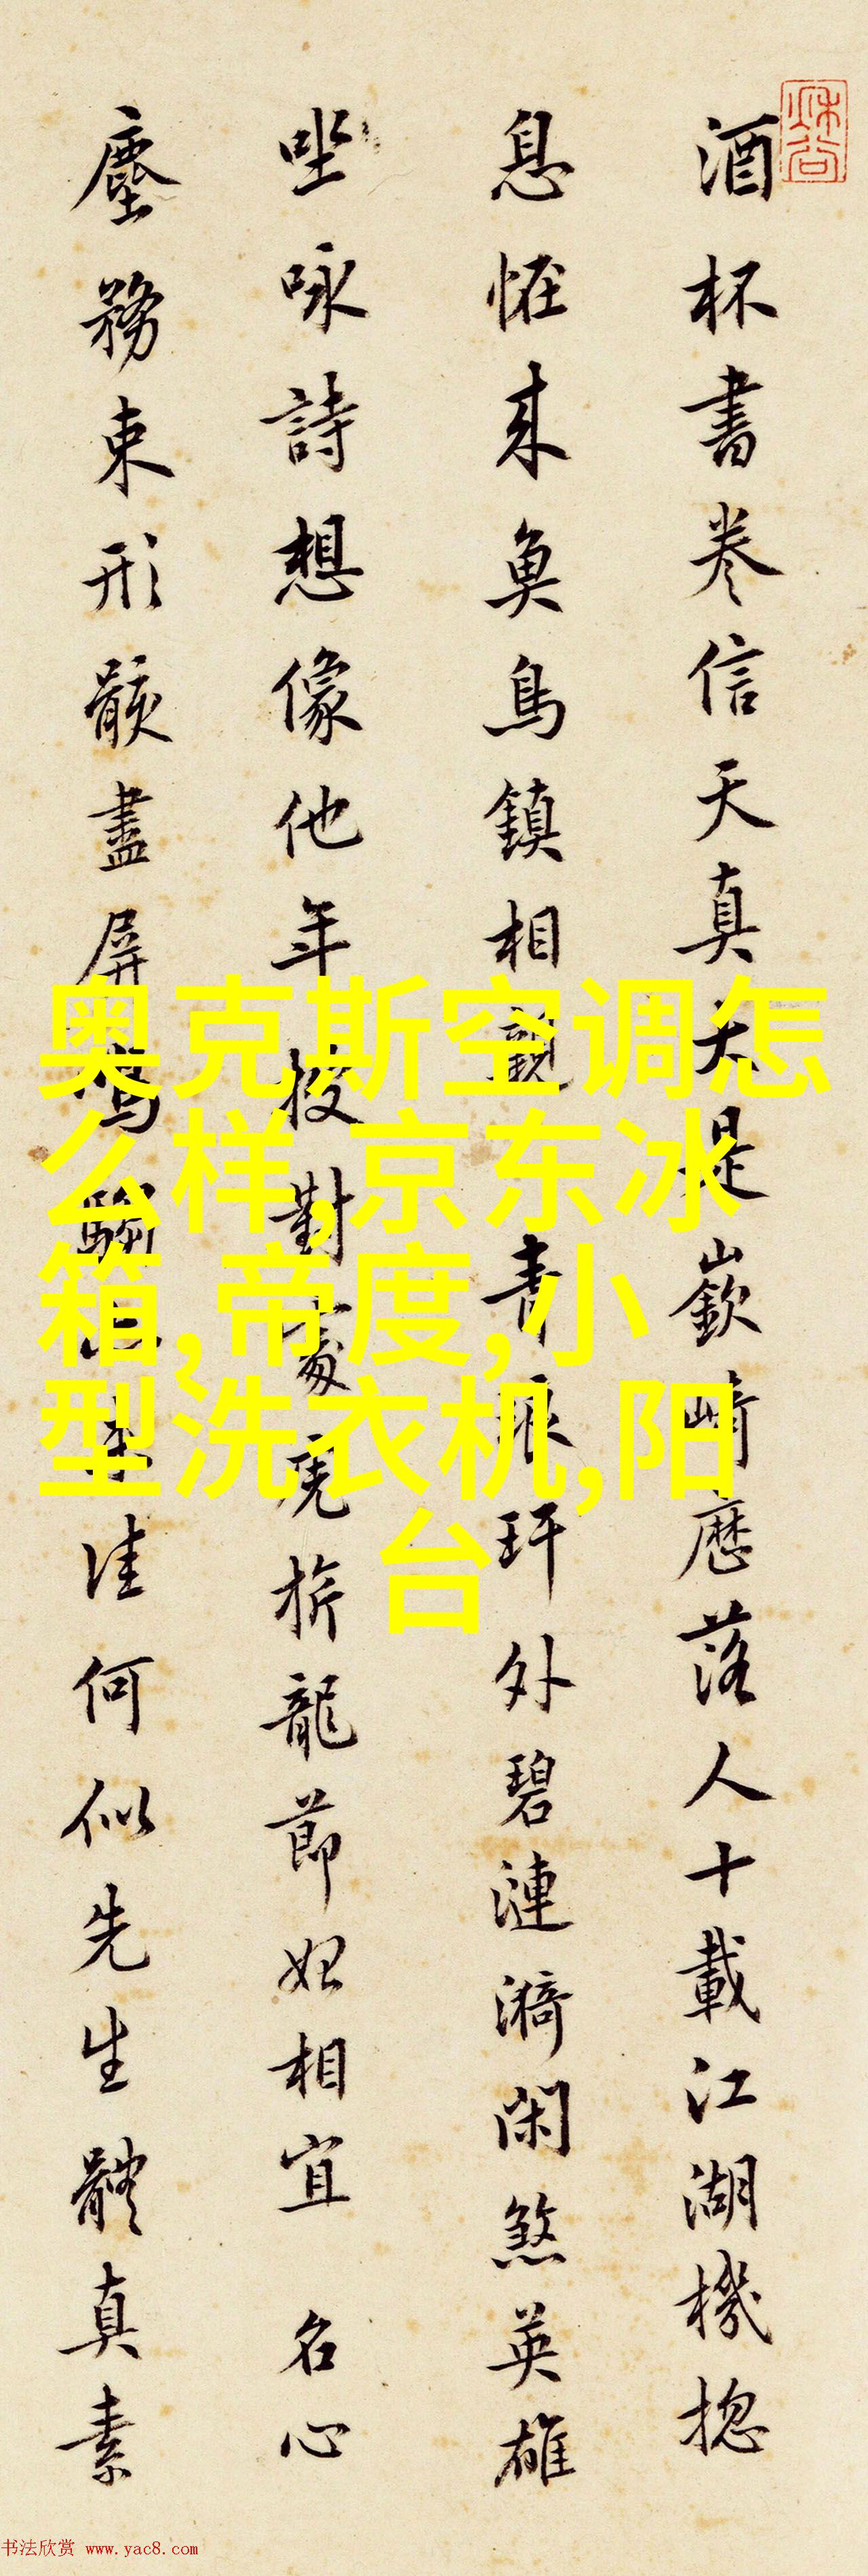 酒杯書卷信天真大是嶔崎歷落人十載江湖機揔
息恠來魚鳥鎮相親 青琅玕外碧漣漪閑煞英雄
坐咏詩想像他年 投對豪虎旂龍節好相宜 名心
塵務束形骸盡屏 佳何似先生體真素
奥克斯空调怎
么样,京东冰
箱,帝度,小
型洗衣机,阳
台
书法欣赏 www.yac8.com